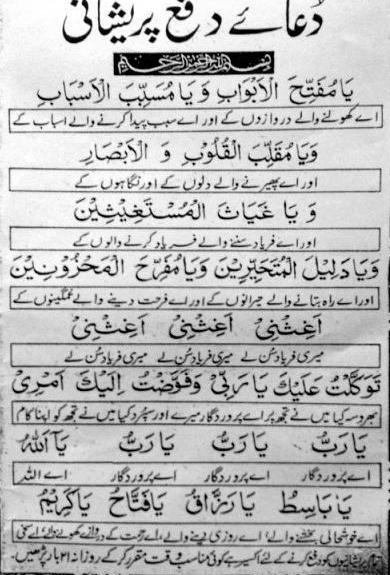 دُعائے دفع پریشانی
بسم اللہ الرحمن الرحیم
يَا مُفَتِّحَ الْاَبْوَابِ وَ يَا مُسَبِّبَ الْاَسْبَابِ
اے کھولنے والے دروازوں کے اور اے سبب پیدا کرنے والے اسباب کے
وَيَا مُقَلِّبَ الْقُلُوْبِ وَ الْاَبْصَارِ
اور اے پھیرنے والے دلوں کے اور نگاہوں کے
وَ يَا غِيَاثَ الْمُسْتَغِيْثِيْنَ
اور اے فریاد سننے والے فریاد کرنے والوں کے
وَيَا دَلِيْلَ الْمُتَحَيِّرِيْنَ وَيَا مُفَرِّحَ الْمَحْزُوْنِيْنَ
اور اے راہ بتانے والے حیرانوں کے اور اے فرحت دینے والے غمگینوں کے
اَغِثْنِيْ اَغِثْنِيْ اَغِثْنِيْ
میری فریاد سُن لے میری فریاد سُن لے میری فریاد سُن لے
تَوَكَّلْتُ عَلَيْكَ يَا رَبِّيْ وَفَوَّضْتُ اِلَيْكَ اَمْرِيْ
بھروسہ کیا میں نے تجھ پر اے پروردگار میرے اور سپرد کیا میں نے تجھ کو اپنا کام
يَا رَبُّ يَا رَبُّ يَا رَبُّ يَا اَللهُ
اے پروردگار اے پروردگار اے پروردگار اے اللہ
يَا بَاسِطُ يَا رَزَّاقُ يَا فَتَّاحُ يَا كَرِيْمُ
اے خوشحالی بخشنے والے، اے روزی دینے والے، اے رحمت کے دروازے کھولنے والے، اے سخی
تمام پریشانیوں کو دفع کرنے کے لئے اکسیر ہے کوئی مناسب وقت مقرر کر کے روزانہ ۲۱ بار پڑھیں۔